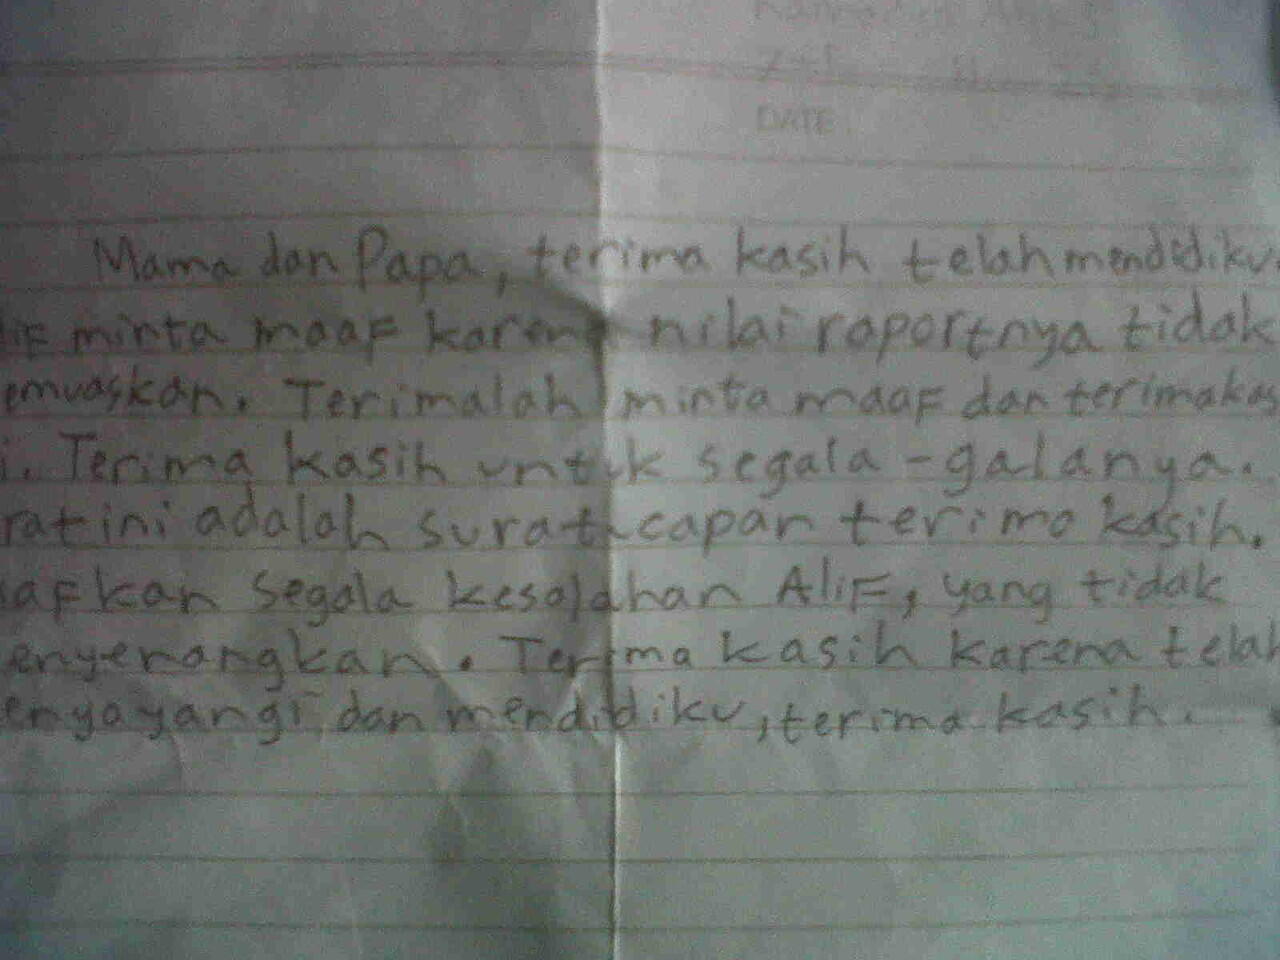 DATE
Mama dan Papa, terima kasih telah mendidiku.
iF minta maaF karena nilai raportnya tidak
emuaskan. Terimalah minta maaF dan terimakas
i. Terima kasih untuk segala-galanya.
rat ini adalah surat ucapan terima kasih.
aFkan segala kesalahan AliF, yang tidak
enyenangkan. Terima kasih karena telah
enyayangi dan mendidiku, terima kasih.